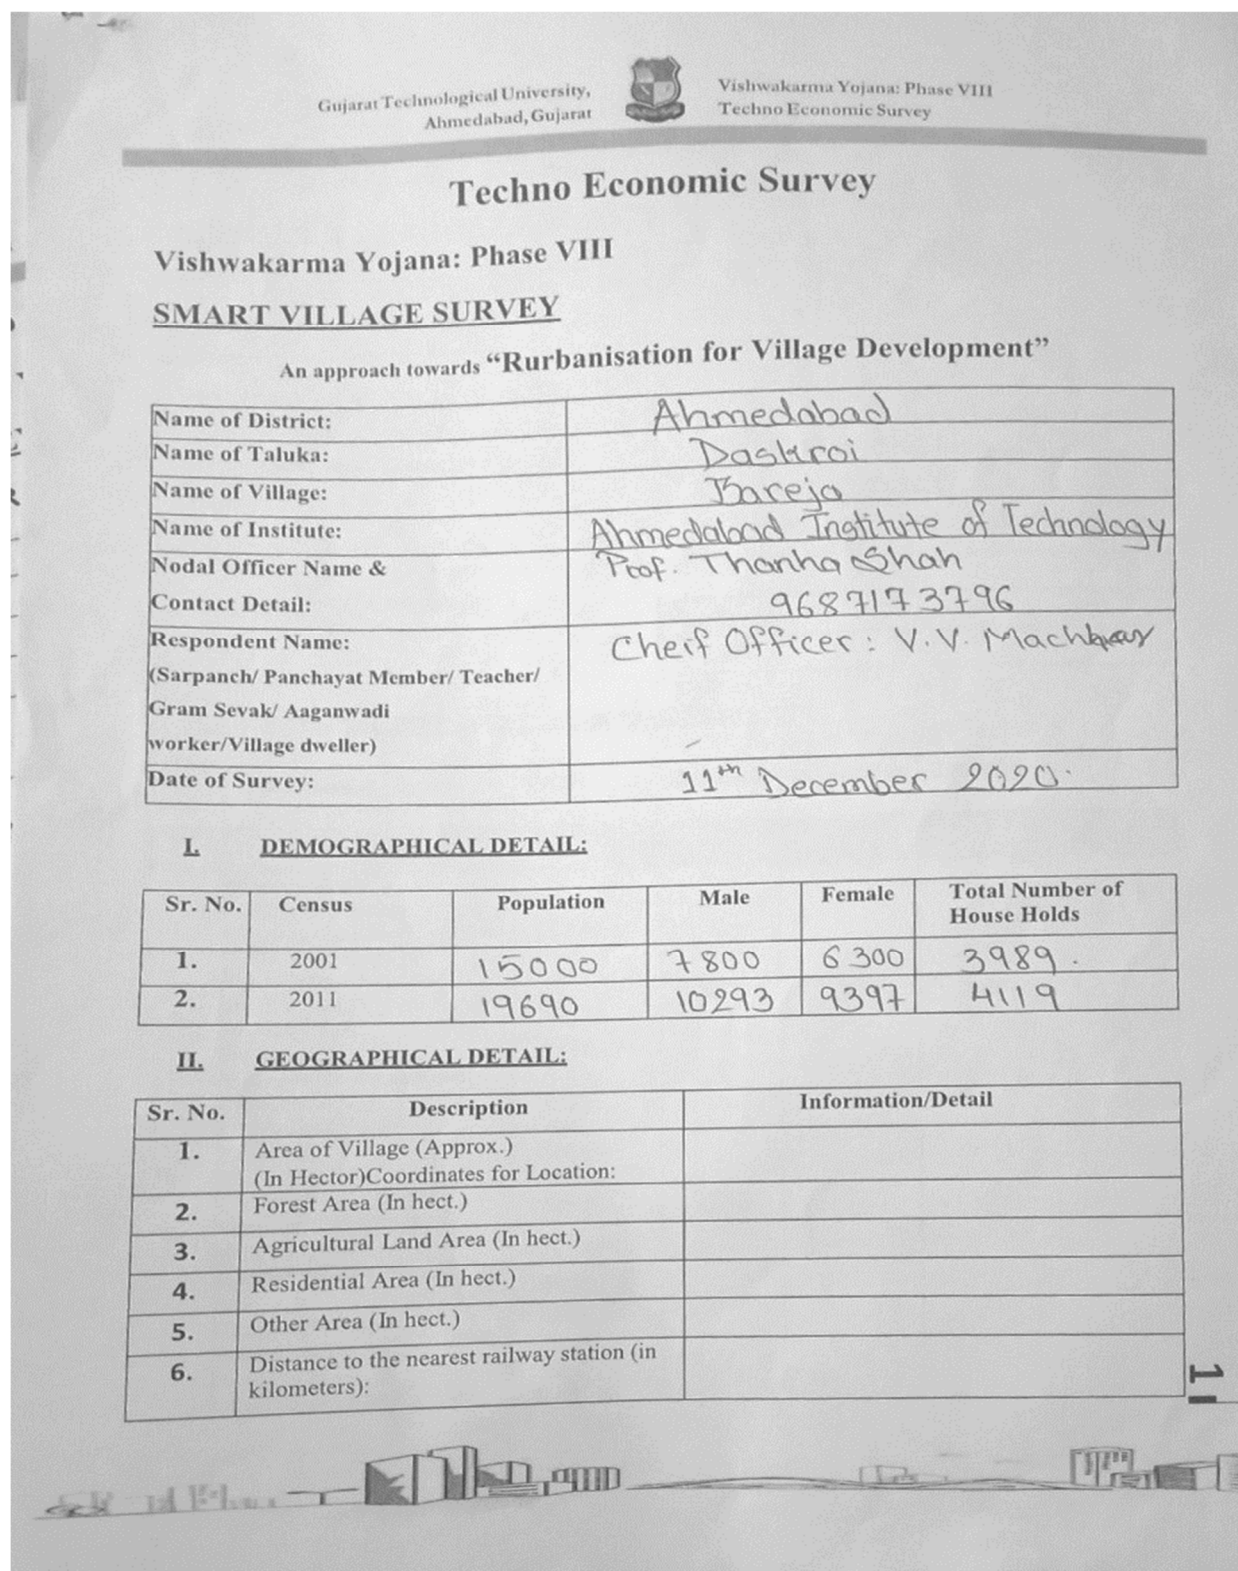 Gujarat Technological University,
Ahmedabad, Gujarat
Vishwakarma Yojana: Phase VIII
Techno Economic Survey
Techno Economic Survey
Vishwakarma Yojana: Phase VIII
SMART VILLAGE SURVEY
An approach towards “Rurbanisation for Village Development”
Name of District: Ahmedabad
Name of Taluka: Daskroi
Name of Village: Bareja
Name of Institute: Ahmedabad Institute of Technology
Nodal Officer Name & Prof. Thanha Shah
Contact Detail: 9687173796
Respondent Name: Cheif Officer: V.V.
(Sarpanch/ Panchayat Member/ Teacher/
Gram Sevak/ Aaganwadi
worker/Village dweller)
Date of Survey: 11th December 2020.
I. DEMOGRAPHICAL DETAIL:
Sr. No. Census Population Male Female Total Number of
House Holds
1. 2001 15000 7800 6300 3989.
2. 2011 19690 10293 9397 4119
II. GEOGRAPHICAL DETAIL:
Sr. No. Description Information/Detail
1. Area of Village (Approx.)
(In Hector)Coordinates for Location:
2. Forest Area (In hect.)
3. Agricultural Land Area (In hect.)
4. Residential Area (In hect.)
5. Other Area (In hect.)
6. Distance to the nearest railway station (in
kilometers):
1